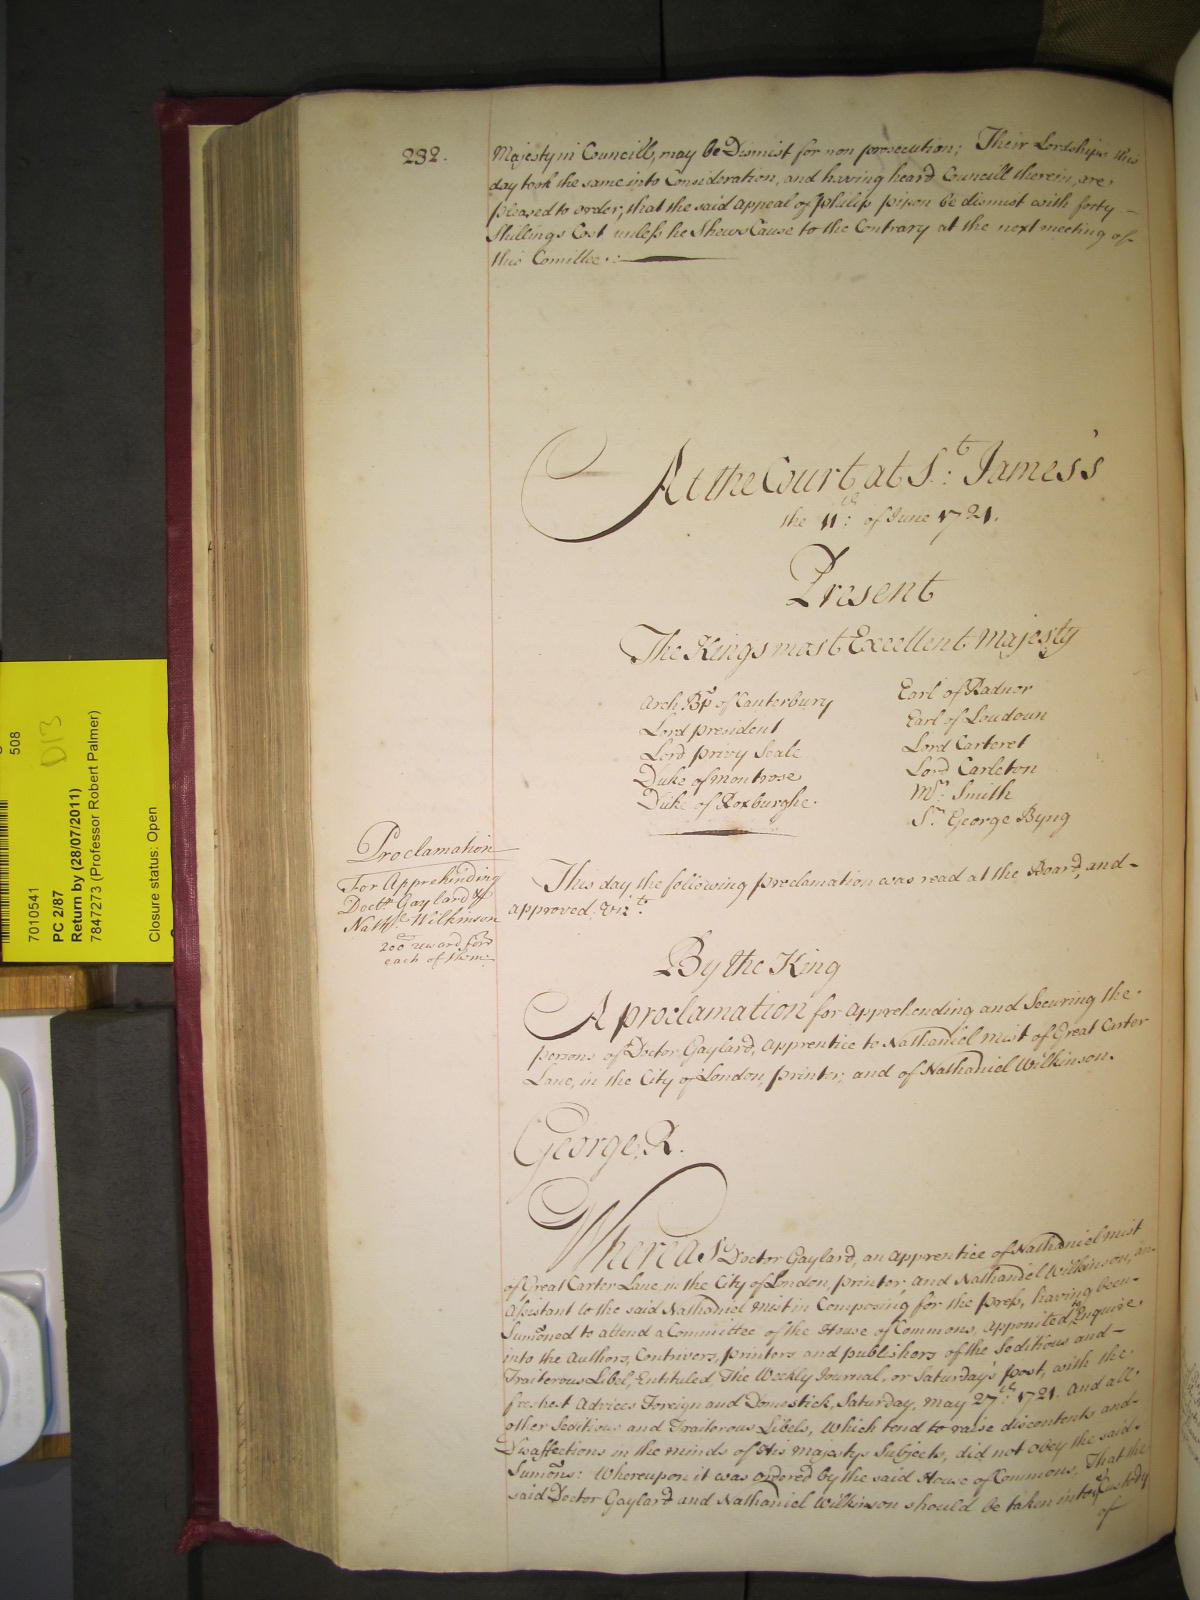 232.
Majesty in Councill, may be Dismist for non prosecution; Their Lordships this
day took the same into Consideration, and having heard Councill therein, are,
pleased to order, that the said Appeal of Philip pipon be dismist with forty
Shillings Cost unless he Shews Cause to the Contrary at the next meeting of
this Comittee.:
At the Court at St: James's
the 11th: of June 1721.
Present
The Kings most Excellent Majesty
Arch Bp of Canterbury
Lord president
Lord privy Seale
Duke of Montrose
Duke of Roxburghe.
Earl of Radnor
Earl of Loudoun
Lord Carteret
Lord Carleton
Mr: Smith
Sr George Byng
Proclamation
For Apprehinding
Doctr Gaylard &
Nathll Wilkinson
200 reward for
each of them
This day the following proclamation was read at the Board, and
approved. Vizt:
By the King
A proclamation for Apprehending and Securing the
persons of Doctor Gaylard, Apprentice to Nathaniel Mist of Great Carter
Lane, in the City of London, printer; and of Nathaniel Wilkinson.
George, R.
Whereas Doctor Gaylard, an Apprentice of Nathaniel Mist
of Great Carter Lane, in the City of London, printer; and Nathaniel Wilkinson, an
Assistant to the said Nathaniel Mist in Composing for the press, having been
Sumoned to attend a Committee of the House of Commons, Appointed to Enquire,
into the Authors, Contrivers, printers and publishers of the Seditious and
Traiterous Libel, Entituled The Weekly Journal, or Saturday's post, with the
freshest Advices Foreign and Domestick, Saturday, May 27th: 1721. And all
other Seditious and Traiterous Libels, Which tend to raise discontents and
Disaffections in the minds of His Majestys Subjects, did not obey the said
Sumons: Whereupon it was ordered by the said House of Commons, That the
said Doctor Gaylard and Nathaniel Wilkinson should be taken into ye Custody
of
508
D13
7010541
PC 2/87
Return by (28/07/2011)
7847273 (Professor Robert Palmer)
Closure status: Open